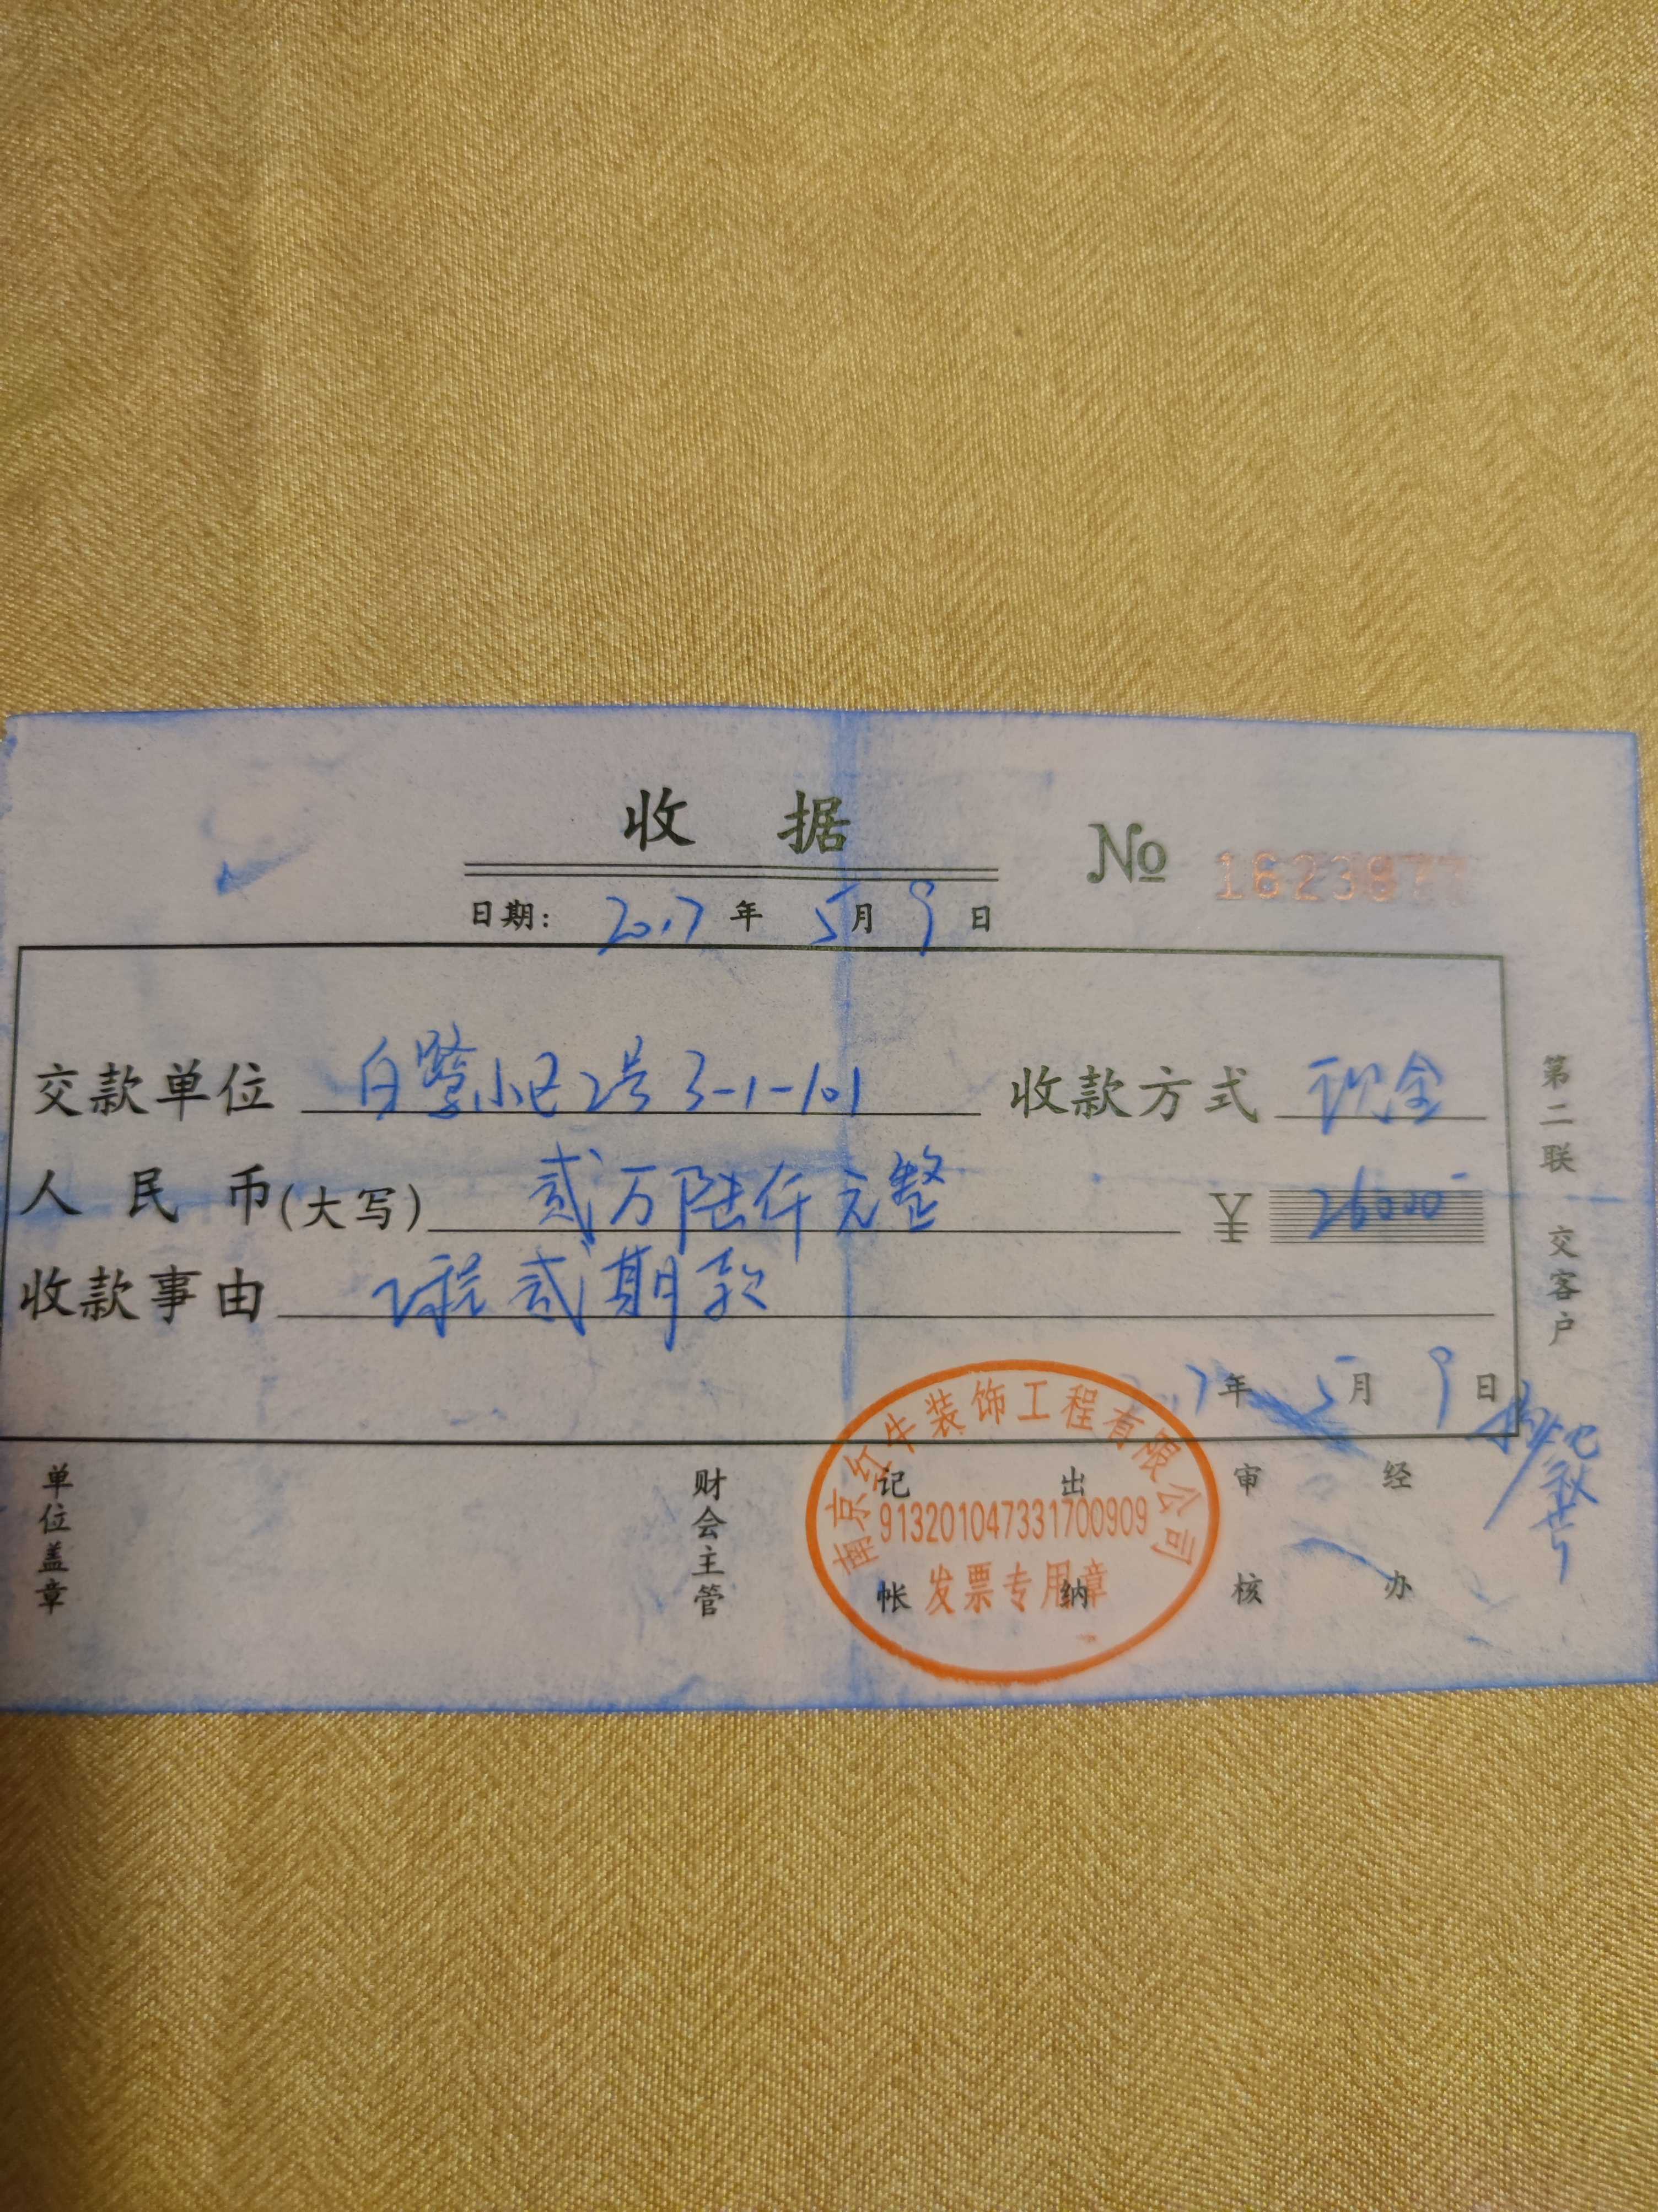 收据
No 16238
日期: 2017年5月9日
交款单位 白鹭小区2号3-1-101 收款方式 现金
人民币(大写) 贰万陆仟元整 ¥ 26000-
收款事由 工程贰期款
2017年5月9日
第二联 交客户
单位盖章 财会主管 记帐 出纳 审核 经办
南京红牛装饰工程有限公司
913201047331700909
发票专用章